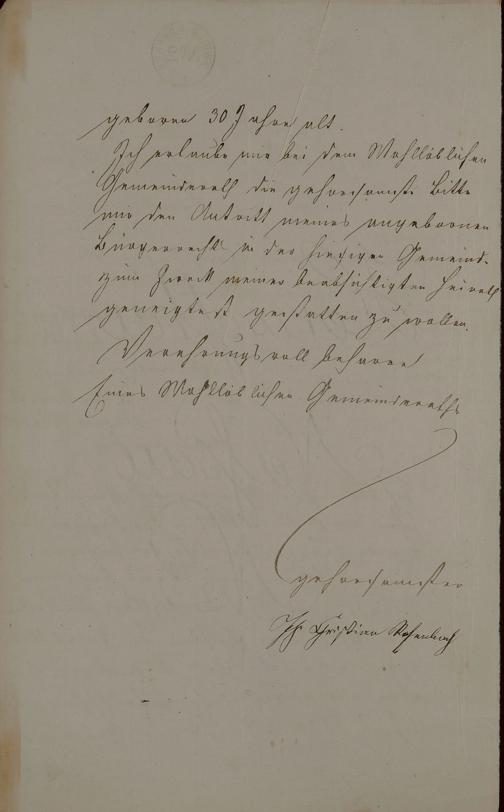 geboren 30 Jahre alt.
Ich erlaube mir bei dem Wohllöblichen
Gemeinderath die gehorsamste Bitte
mir den Antritt meines angebornen
Bürgerrechts in der hiesigen Gemeind-
zum Zweck meiner beabsichtigten Heirath
geneigtest gestatten zu wollen.
Verehrungsvoll beharre
Eines Wohllöblichen Gemeinderaths
gehorsamster
Joh Christian Rosenbach